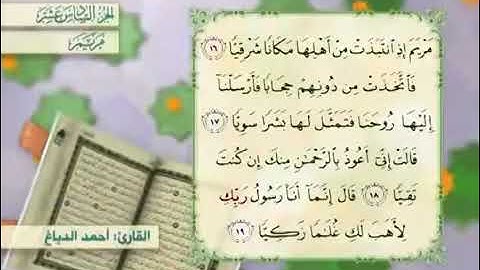 الجزء السادس عشر
مريم
مَرْيَمَ إِذِ ٱنتَبَذَتْ مِنْ أَهْلِهَا مَكَانًا شَرْقِيًّا ١٦
فَٱتَّخَذَتْ مِن دُونِهِمْ حِجَابًا فَأَرْسَلْنَآ
إِلَيْهَا رُوحَنَا فَتَمَثَّلَ لَهَا بَشَرًا سَوِيًّا ١٧
قَالَتْ إِنِّىٓ أَعُوذُ بِٱلرَّحْمَٰنِ مِنكَ إِن كُنتَ
تَقِيًّا ١٨ قَالَ إِنَّمَآ أَنَا۠ رَسُولُ رَبِّكِ
لِأَهَبَ لَكِ غُلَٰمًا زَكِيًّا ١٩
القارئ: أحمد الدباغ